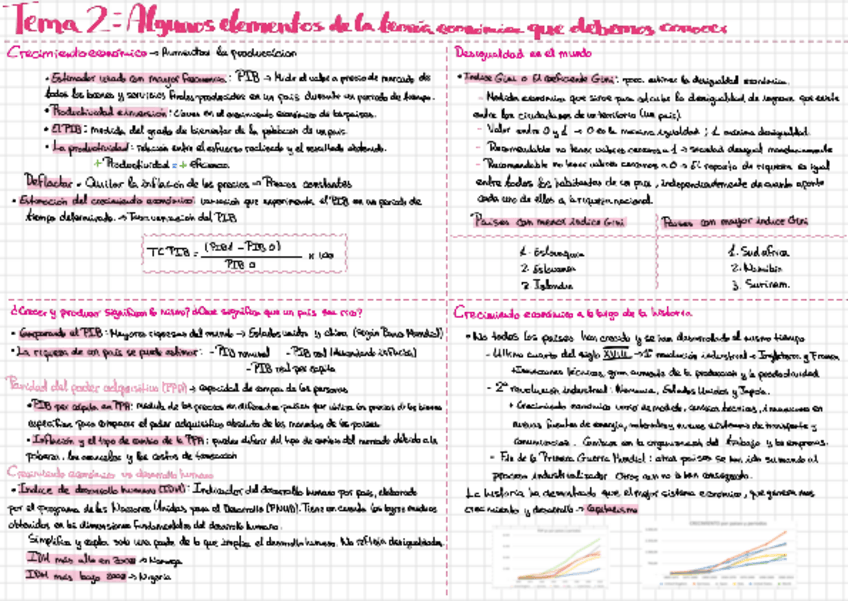 Tema 2: Algunos elementos de la teoría económica que debemos conocer
Crecimiento económico → Aumentar la producción
• Estimador usado con mayor frecuencia: PIB → Medir el valor a precio de mercado de
todos los bienes y servicios finales producidos en un país durante un periodo de tiempo.
• Productividad e inversión: Claves en el crecimiento económico de los países.
• El PIB: medida del grado de bienestar de la población de un país.
• La productividad: relación entre el esfuerzo realizado y el resultado obtenido.
+ Productividad = + eficiencia
Deflactar = Quitar la inflación de los precios → Precios constantes
• Estimación del crecimiento económico: variación que experimenta el PIB en un periodo de
tiempo determinado. → Tasa variación del PIB
TC PIB = (PIB 1 - PIB 0) / PIB 0 x 100
Desigualdad en el mundo
• Índice Gini o El coeficiente Gini: para estimar la desigualdad económica.
- Medida económica que sirve para calcular la desigualdad de ingresos que existe
entre los ciudadanos de un territorio (un país).
- Valor entre 0 y 1 → 0 es la máxima igualdad; 1 máxima desigualdad.
- Recomendable no tener valores cercanos a 1 → sociedad desigual
- Recomendable no tener valores cercanos a 0 → El reparto de riqueza es igual
entre todos los habitantes de un país, independientemente de cuanto aporte
cada uno de ellos a la riqueza nacional.
Países con menor índice Gini
1. Eslovaquia
2. Eslovenia
3. Islandia
Países con mayor índice Gini
1. Sudáfrica
2. Namibia
3. Surinam.
¿Crecer y producir significan lo mismo? ¿Qué significa que un país sea rico?
• Comparando el PIB: Mayores riquezas del mundo → Estados Unidos y China (Según Banco Mundial)
• La riqueza de un país se puede estimar: - PIB nominal - PIB real (descontando inflación)
- PIB real per cápita
Paridad del poder adquisitivo (PPA) → capacidad de compra de las personas
• PIB per cápita en PPA: medida de los precios en diferentes países que utiliza los precios de los bienes
específicos para comparar el poder adquisitivo absoluto de las monedas de los países.
• Inflación y el tipo de cambio de la PPA: pueden diferir del tipo de cambio del mercado debido a la
pobreza, los aranceles y los costos de transacción
Crecimiento económico vs desarrollo humano
• Índice de desarrollo humano (IDH): Indicador del desarrollo humano por país, elaborado
por el programa de las Naciones Unidas para el Desarrollo (PNUD). Tiene en cuenta los logros medios
obtenidos en las dimensiones fundamentales del desarrollo humano.
Simplifica y capta solo una parte de lo que implica el desarrollo humano. No refleja desigualdades
IDH más alto en → Noruega
IDH más bajo → Nigeria
Crecimiento económico a lo largo de la historia
• No todos los países han crecido y se han desarrollado al mismo tiempo
- Último cuarto del siglo XVIII → 1ª revolución industrial → Inglaterra y Francia
+ Innovaciones técnicas, gran aumento de la producción y la productividad
- 2ª revolución industrial: Alemania, Estados Unidos y Japón.
+ Crecimiento económico vario de modelo, cambios técnicos, innovaciones en
nuevas fuentes de energía, materiales y nuevos sistemas de transporte y
comunicación. Cambios en la organización del trabajo y las empresas.
- Fin de la Primera Guerra Mundial: otros países se han ido sumando al
proceso industrializador. Otros aún no lo han conseguido.
La historia ha demostrado que el mejor sistema económico, que genera más
crecimiento y desarrollo → Capitalismo